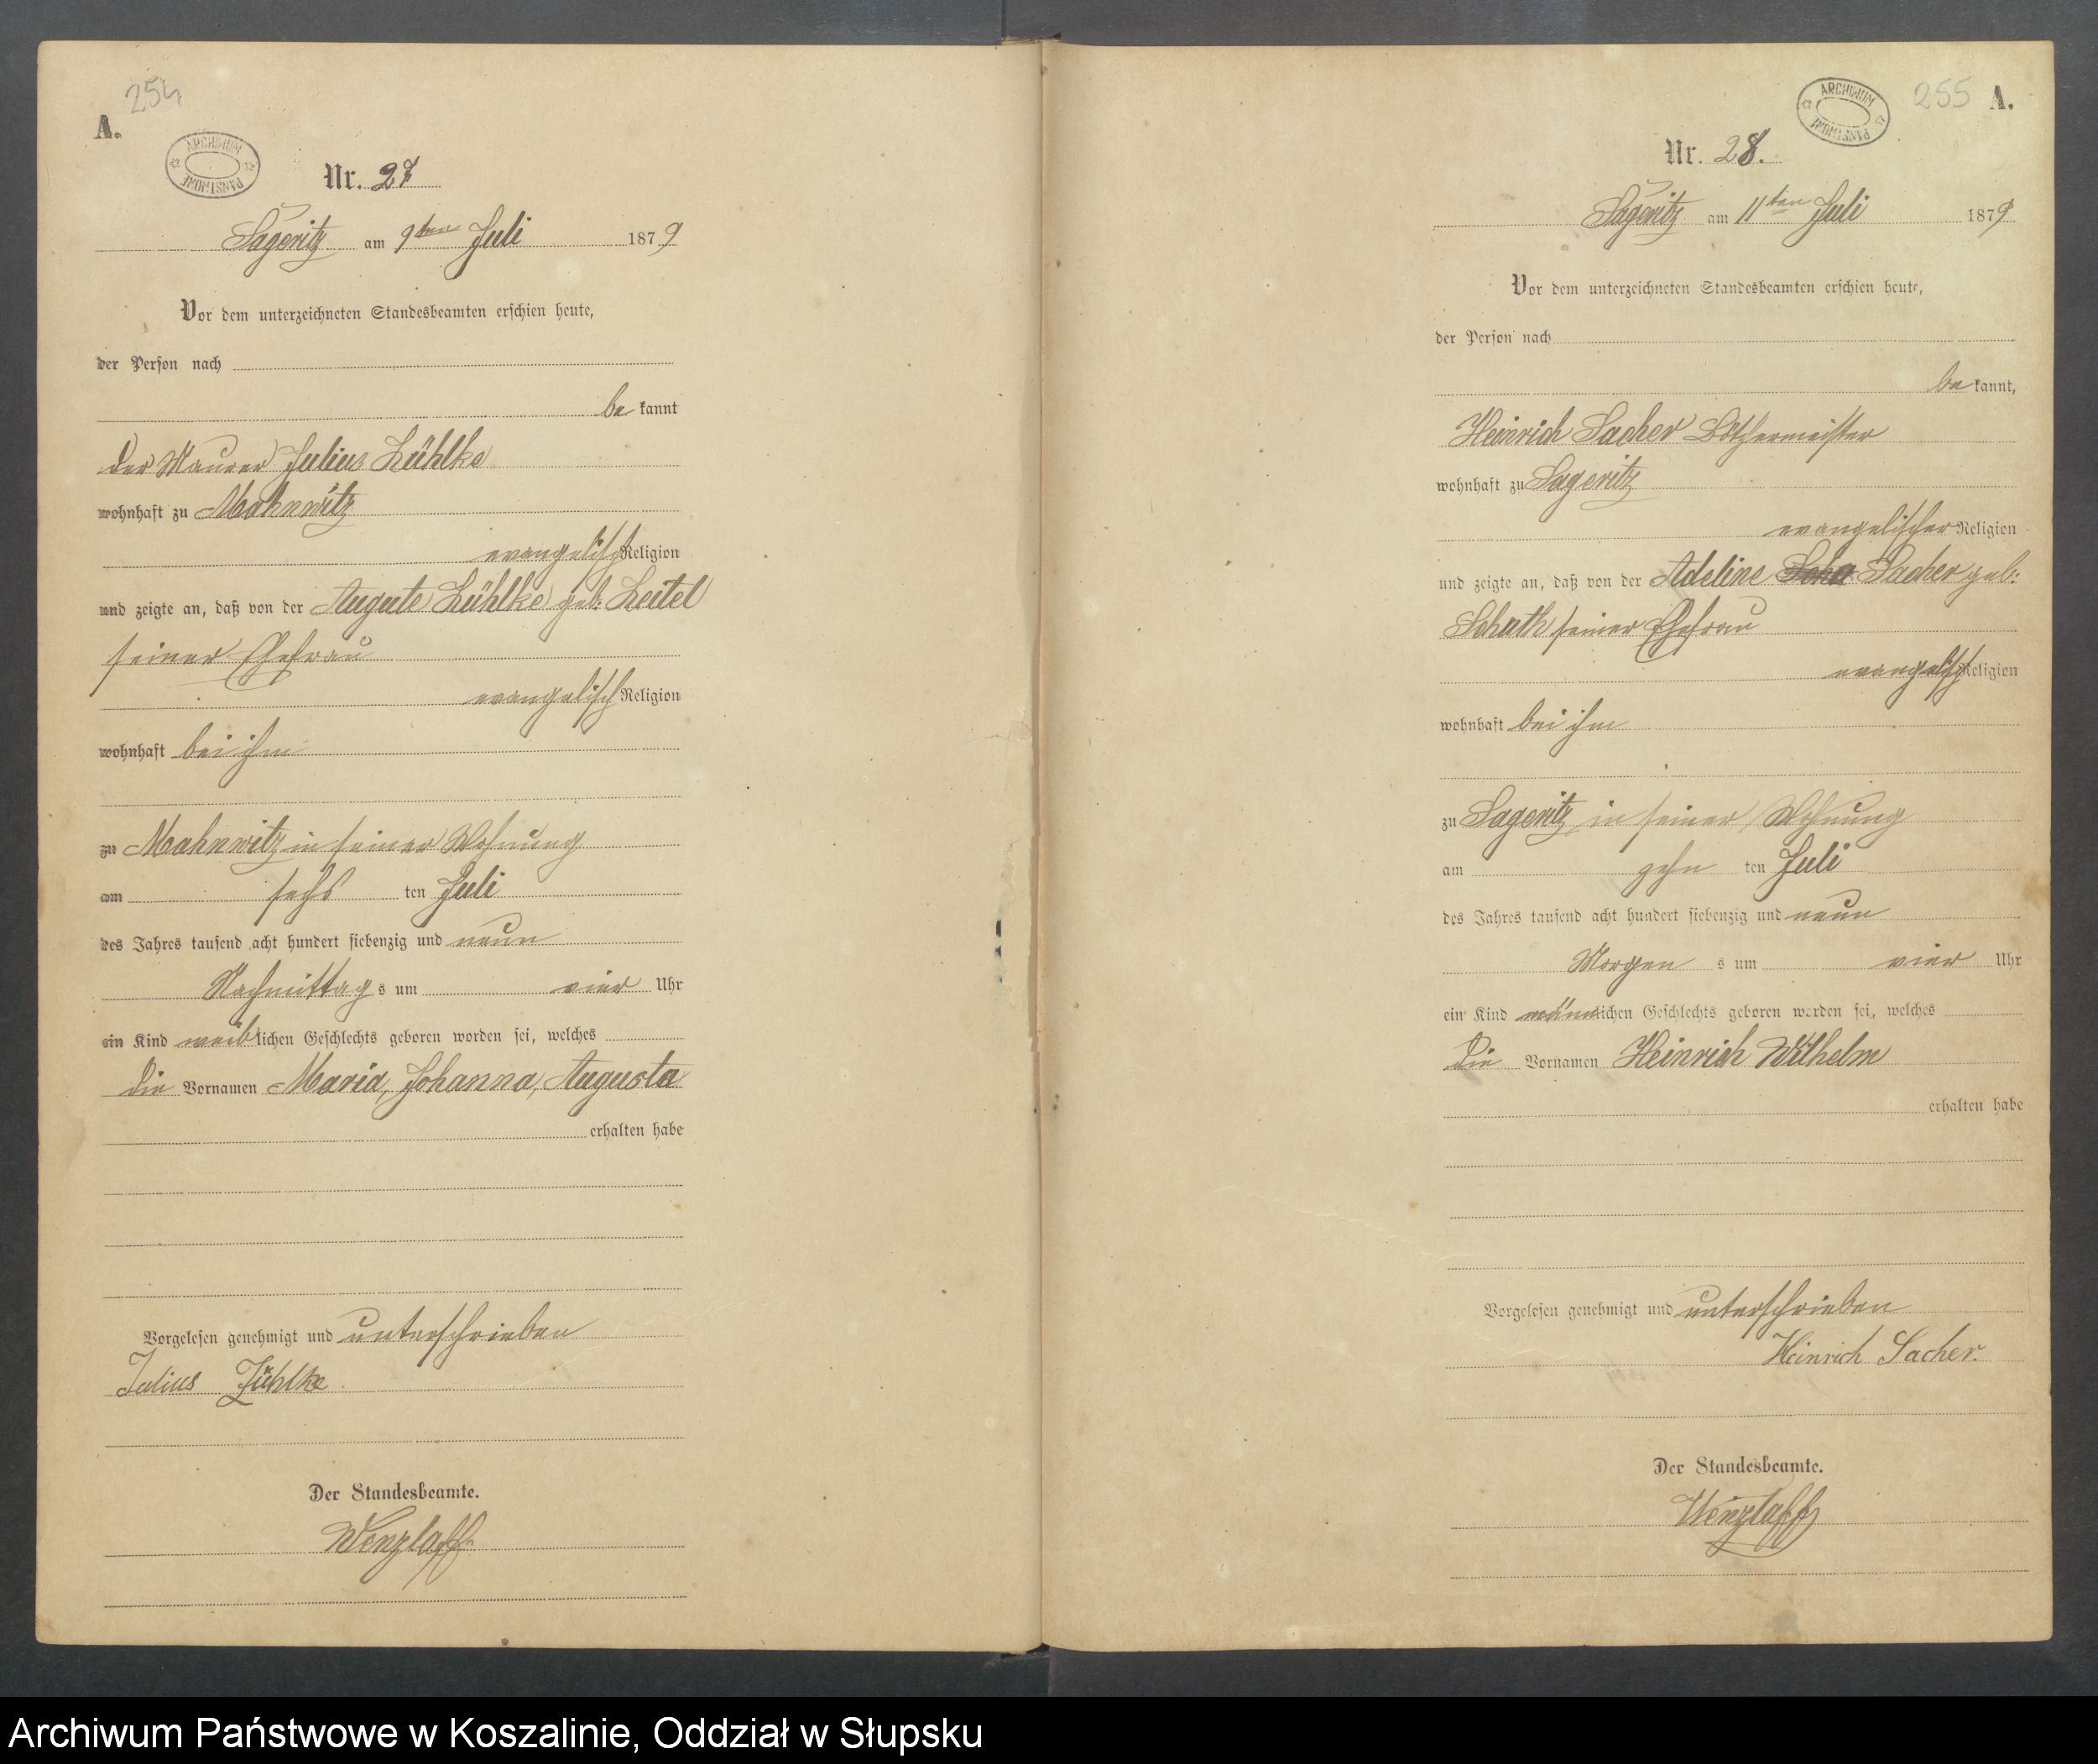 254
A.
ARCHIWUM PAŃSTWOWE
Nr. 27
Sageritz am 9ten Juli 1879
Vor dem unterzeichneten Standesbeamten erschien heute,
der Person nach
bekannt
der Maurer Julius Lühlke
wohnhaft zu Mahnwitz
evangelisch Religion
und zeigte an, daß von der Auguste Lühlke geb: Leitel
seiner Ehefrau
evangelisch Religion
wohnhaft bei ihm
zu Mahnwitz in seiner Wohnung
am sechs ten Juli
des Jahres tausend acht hundert siebenzig und neun
Nachmittag s um vier Uhr
ein Kind weiblichen Geschlechts geboren worden sei, welches
die Vornamen Maria, Johanna, Augusta
erhalten habe
Vorgelesen genehmigt und unterschrieben
Julius Zühlke
Der Standesbeamte.
Wenzlaff.
255 A.
ARCHIWUM PAŃSTWOWE
Nr. 28.
Sageritz am 11ten Juli 1879
Vor dem unterzeichneten Standesbeamten erschien heute,
der Person nach
bekannt,
Heinrich Sacher Böttchermeister
wohnhaft zu Sageritz
evangelischer Religion
und zeigte an, daß von der Adeline Sacher geb:
Schuth seiner Ehefrau
evangelisch Religion
wohnhaft bei ihm
zu Sageritz in seiner Wohnung
am zehn ten Juli
des Jahres tausend acht hundert siebenzig und neun
Morgen s um vier Uhr
ein Kind männlichen Geschlechts geboren worden sei, welches
die Vornamen Heinrich Wilhelm
erhalten habe
Vorgelesen genehmigt und unterschrieben
Heinrich Sacher.
Der Standesbeamte.
Wenzlaff
Archiwum Państwowe w Koszalinie, Oddział w Słupsku